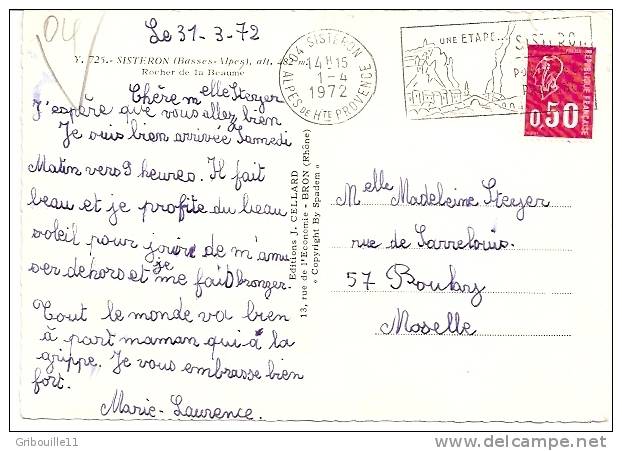 04
Le 31-3-72
Y. 725. - SISTERON (Basses-Alpes), alt. 482 m.
Rocher de la Beaume
Chère Melle Steyer
J'espère que vous allez bien
Je suis bien arrivée Samedi
Matin vers 9 heures. Il fait
beau et je profite du beau
soleil pour jouir de m'amu
ser dehors et je me fait bronzer.
Tout le monde va bien
à part maman qui à la
grippe. Je vous embrasse bien
fort.
Marie-Laurence.
Editions J. CELLARD
13, rue de l'Economie - BRON (Rhône)
« Copyright By Spadem »
04 SISTERON
14 H 15
1-4
1972
ALPES DE HTE PROVENCE
UNE ETAPE...
SISTERON
REPUBLIQUE FRANCAISE
0,50
Melle Madeleine Steyer
rue de Sarrelouis.
57 Boulay
Moselle
Gribouille11
www.delcampe.net